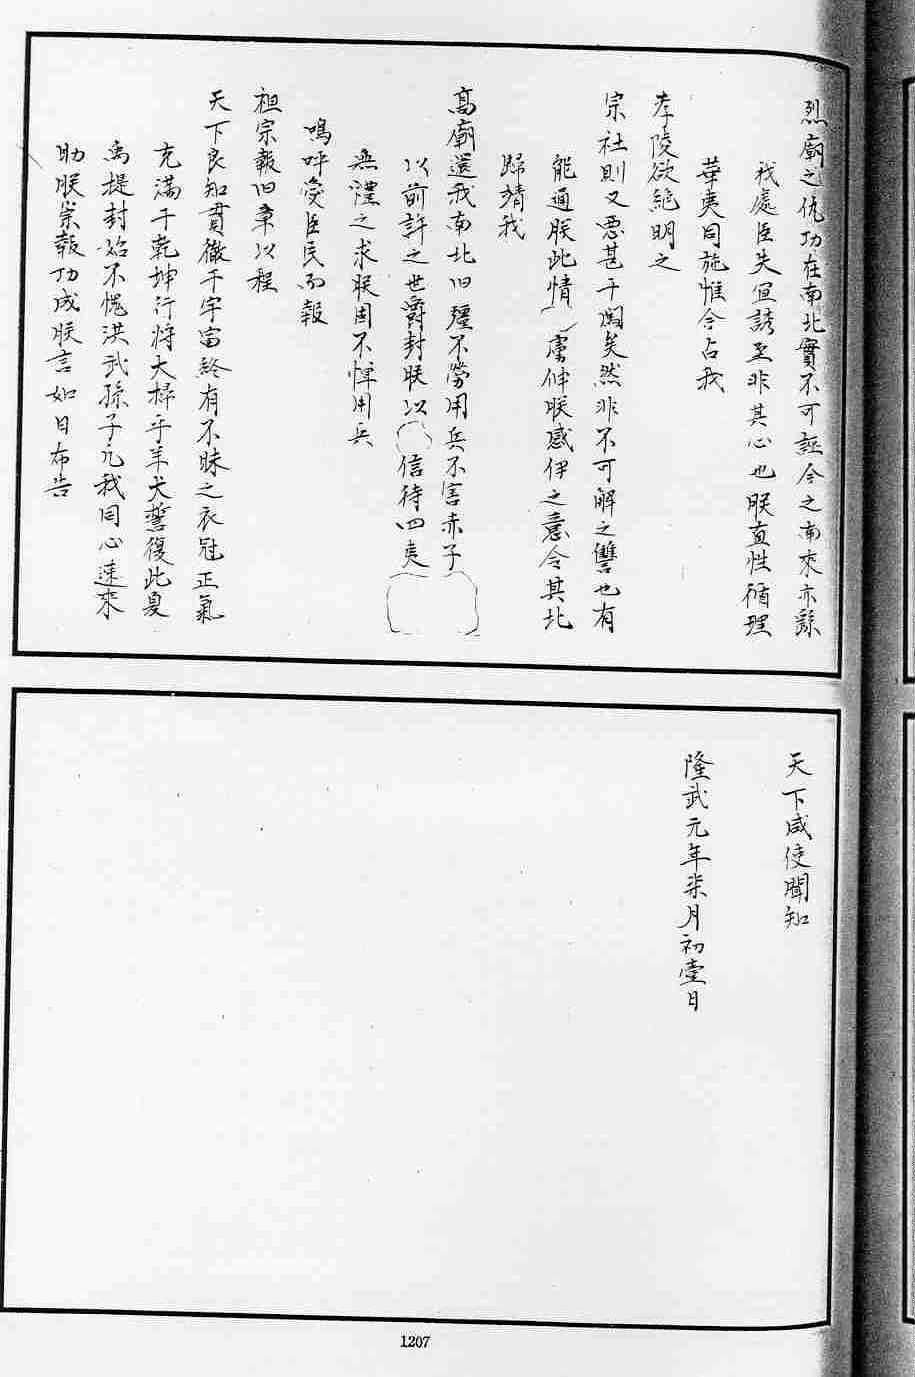 烈廟之仇功在南北實不可誣今之南來亦緣
我處臣失宣諸至非其心也朕直性循理
華夷同施惟今占我
孝陵欲絶明之
宗社則又惡甚于闖矣然非不可解之讐也有
能通朕此情虜伸朕感伊之意令其北
歸靖我
高廟還我南北旧疆不勞用兵不害赤子
以前許之世爵封朕以信待四夷
無禮之求朕固不惮用兵
嗚呼愛臣民而報
祖宗報旧章以程
天下良知貫徹于宇宙終有不昧之衣冠正氣
充滿于乾坤行將大掃乎羊犬誓復此夏
禹提封始不愧洪武孫子凡我同心速來
助朕崇報功成朕言如日布告
天下咸使聞知
隆武元年柒月初壹日
1207